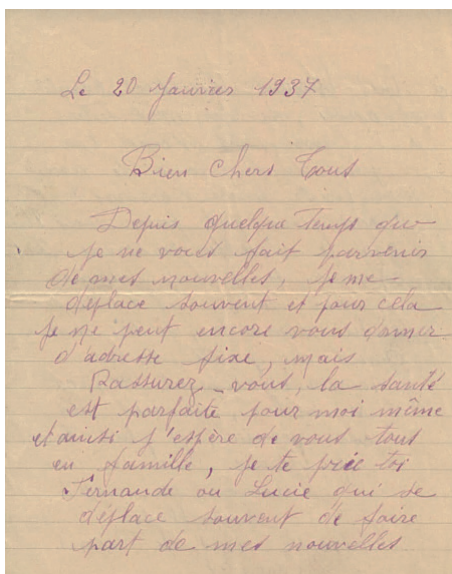 Le 20 Janvier 1937
Bien Chers Tous
Depuis quelque temps que
je ne vous fait parvenir
de mes nouvelles, je me
déplace souvent et pour cela
je ne peut encore vous donner
d'adresse fixe, mais
Rassurez-vous, la santé
est parfaite pour moi même
et ainsi j'espère de vous tous
en famille, je te prie toi
Fernande ou Lucie qui se
déplace souvent de faire
part de mes nouvelles